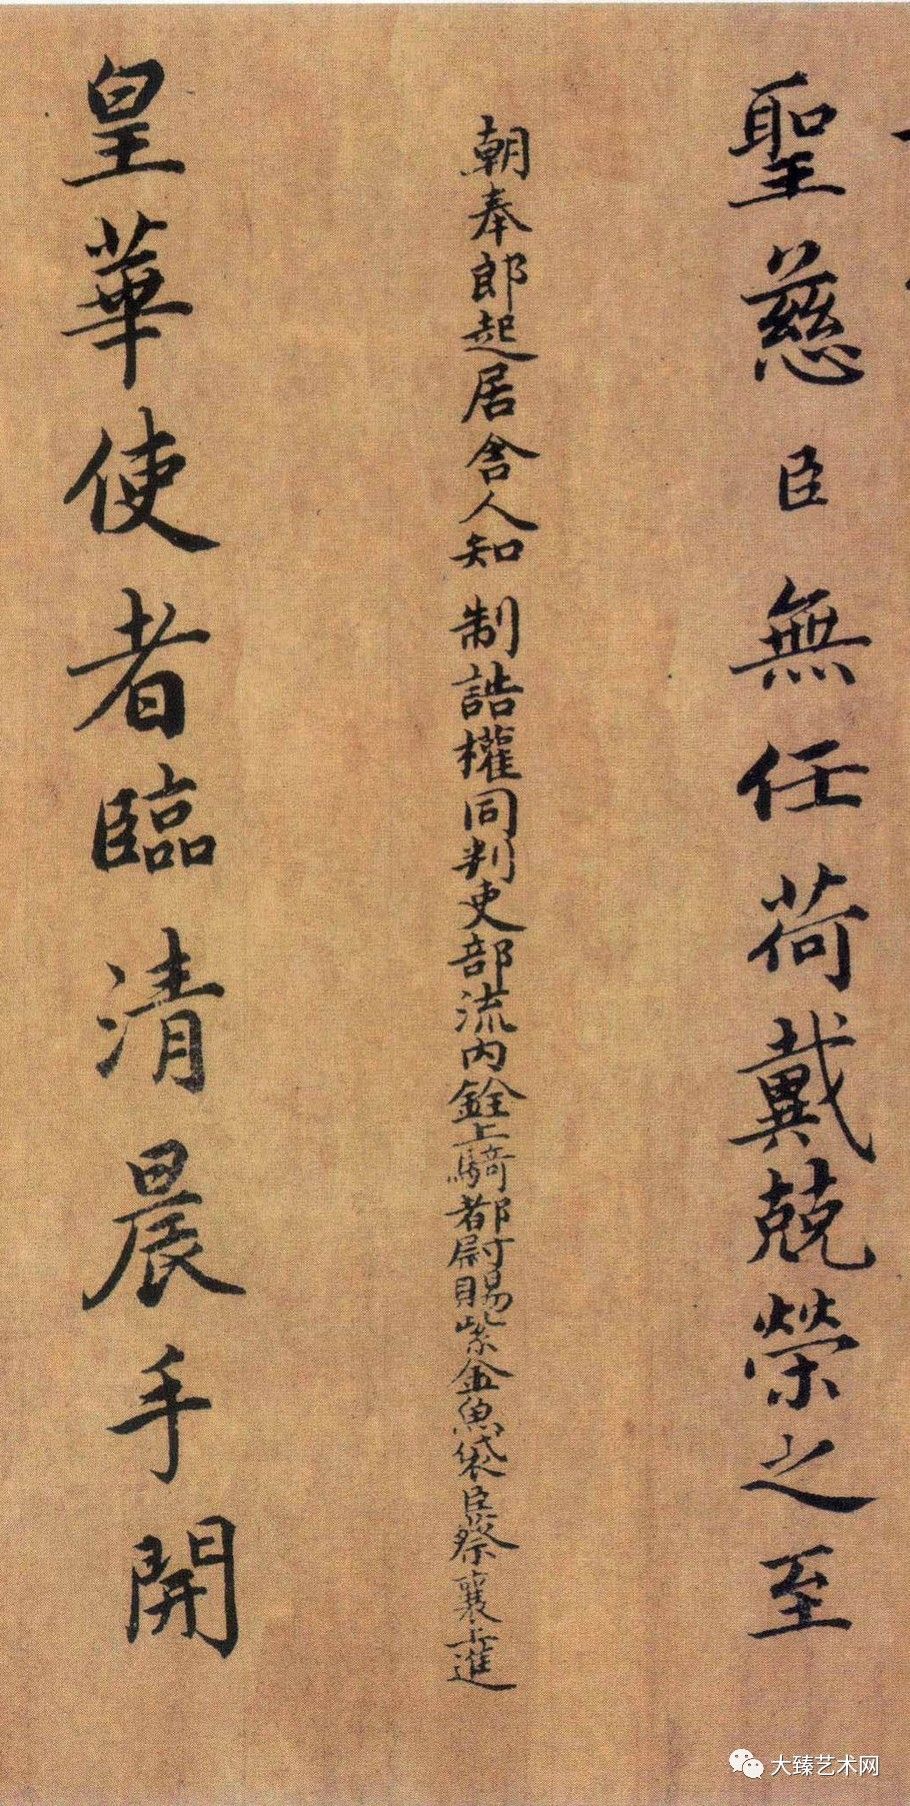 聖慈臣無任荷戴兢榮之至
朝奉郎起居舍人知制誥權同判吏部流內銓上騎都尉賜紫金魚袋臣蔡襄上進
皇華使者臨清晨手開
大臻艺术网